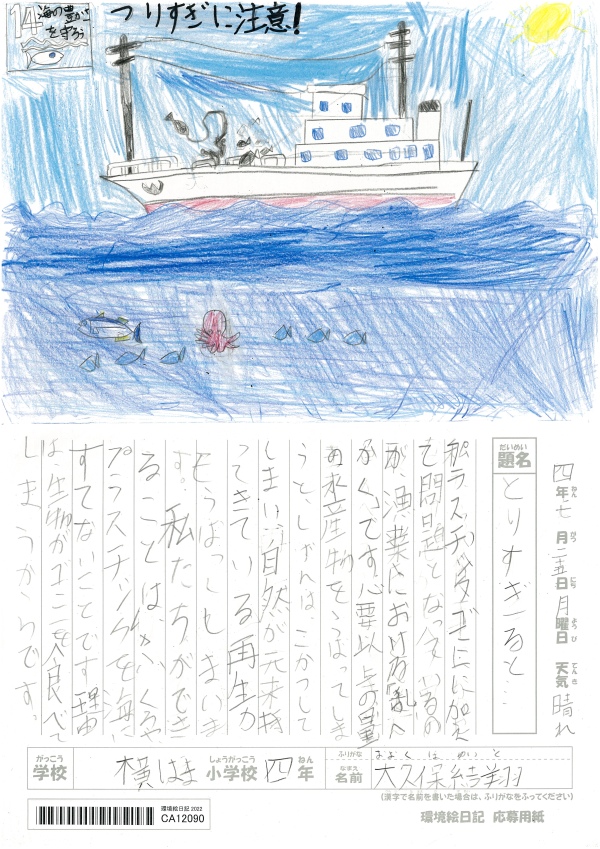 14 海の豊かさ
を守ろう
つりすぎに注意!
四年七月二五日月曜日 天気 晴れ
ねん がつ にち ようび てんき
だいめい
題名
とりすぎると…
プラスチックゴミに加え
て問題となっているの
が、漁業における乱か
かくです。必要以上の量
の水産物をうばってしま
うと、しげんはこかつして
しまい、自然が元来持
ってきている再生力
もうばってしまいま
す。私たちができ
ることは、かんくるや
プラスチックを海に
すてないことです。理由
は、生物がゴミを食べて
しまうからです。
がっこう
学校
横はま
しょうがっこう
小学校
四
ねん
年
ふりがな
おおくぼ ゆいと
なまえ
名前
大久保結翔
(漢字で名前を書いた場合は、ふりがなをふってください)
環境絵日記2022
CA12090
環境絵日記 応募用紙